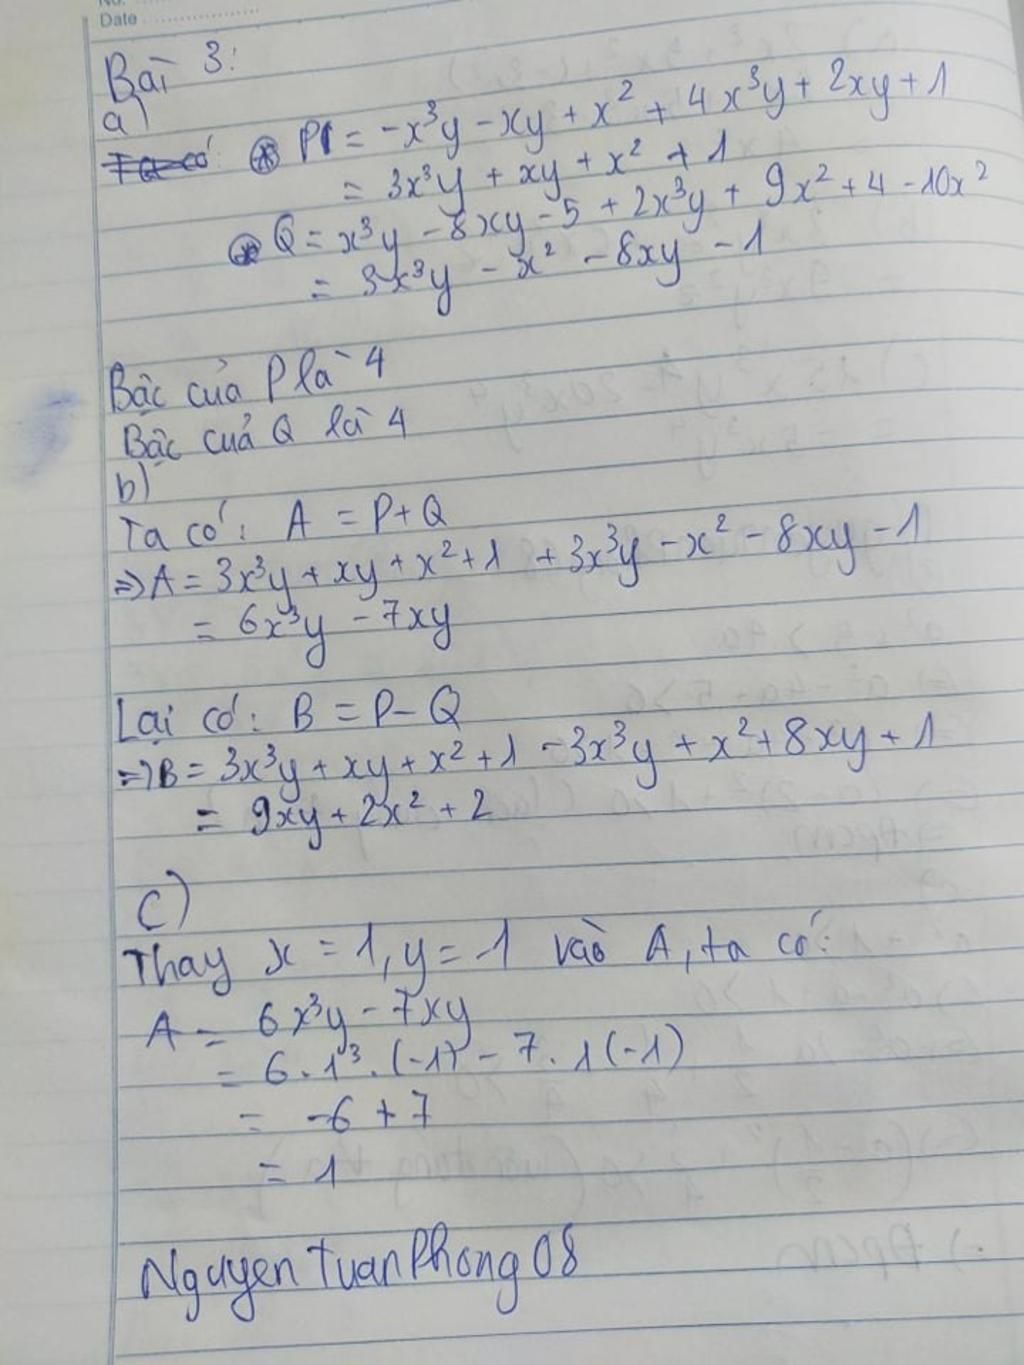 No.
Date
Bài 3:
a)
Ta có: * P = -x³y - xy + x² + 4x³y + 2xy + 1
= 3x³y + xy + x² + 1
* Q = x³y - 8xy - 5 + 2x³y + 9x² + 4 - 10x²
= 3x³y - x² - 8xy - 1
Bậc của P là 4
Bậc của Q là 4
b)
Ta có: A = P + Q
=> A = 3x³y + xy + x² + 1 + 3x³y - x² - 8xy - 1
= 6x³y - 7xy
Lại có: B = P - Q
=> B = 3x³y + xy + x² + 1 - 3x³y + x² + 8xy + 1
= 9xy + 2x² + 2
c)
Thay x = 1, y = 1 vào A, ta có:
A = 6x³y - 7xy
= 6 . 1³ . (-1) - 7 . 1 (-1)
= -6 + 7
= 1
Nguyen Tuan Phong 08